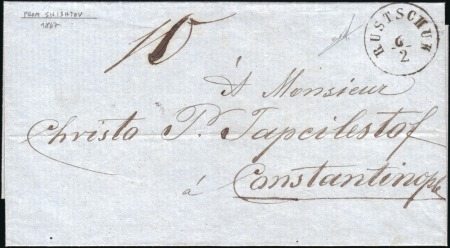 FROM SHISHTOV
1867
RUSTSCHUK
6
2
À Monsieur
Christo P. Tapcilestof
à
Constantinople